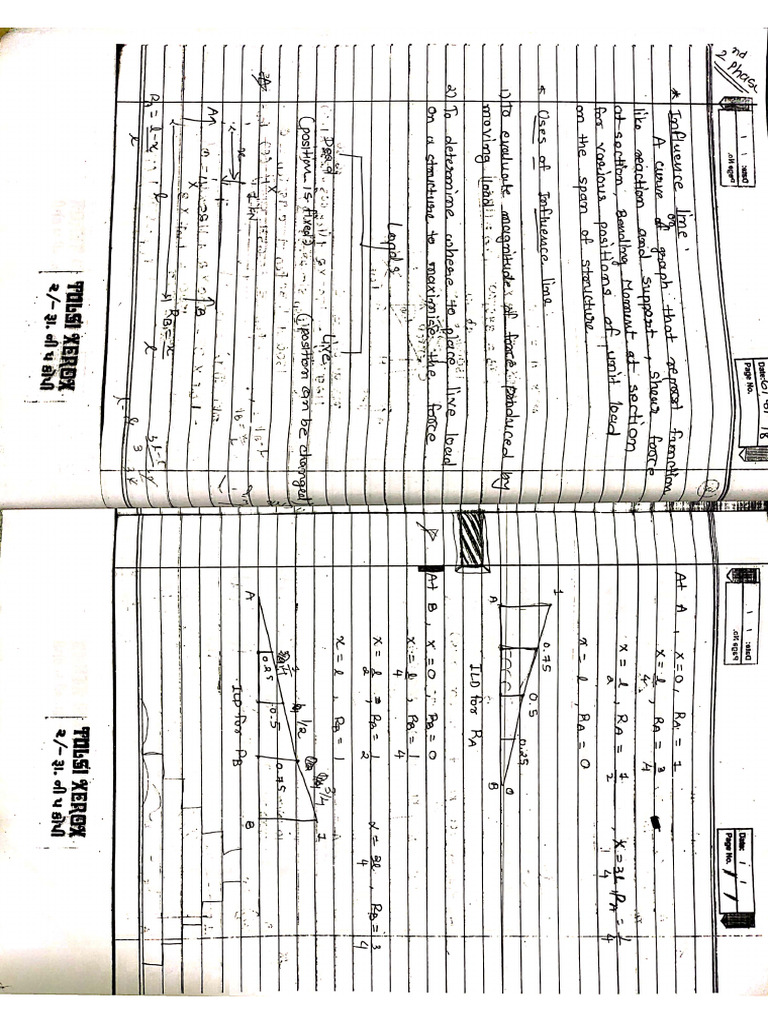 2nd Phase
Date: / /
Page No.
* Influence line :-
A curve or graph that repest function
like reaction and support, shear force
at section Bending Moment at section
for various positions of unit load
on the span of structure.
* Uses of Influence line
1) To evaluate magnitude of force produced by
moving load
2) To determine where to place live load
on a structure to maximise the force.
Loads
Dead Live
(position is fixed) (position can be changed)
x
1 kN
A B
RA = l-x RB = x
l l
TULSI XEROX
Date: / /
Page No.
At A, x=0, RA = 1
x = l/4, RA = 3/4
x = l/2, RA = 1/2, x = 3l/4, RA = 1/4
x = l, RA = 0
1 0.75 0.5 0.25 0
A B
ILD for RA
At B, x=0, RB = 0
x = l/4, RB = 1/4
x = l/2, RA = 1/2 x = 3l/4, RB = 3/4
x = l, RB = 1
1/2 3/4 1
A 0.25 0.5 0.75 B
ILD for RB
TULSI XEROX